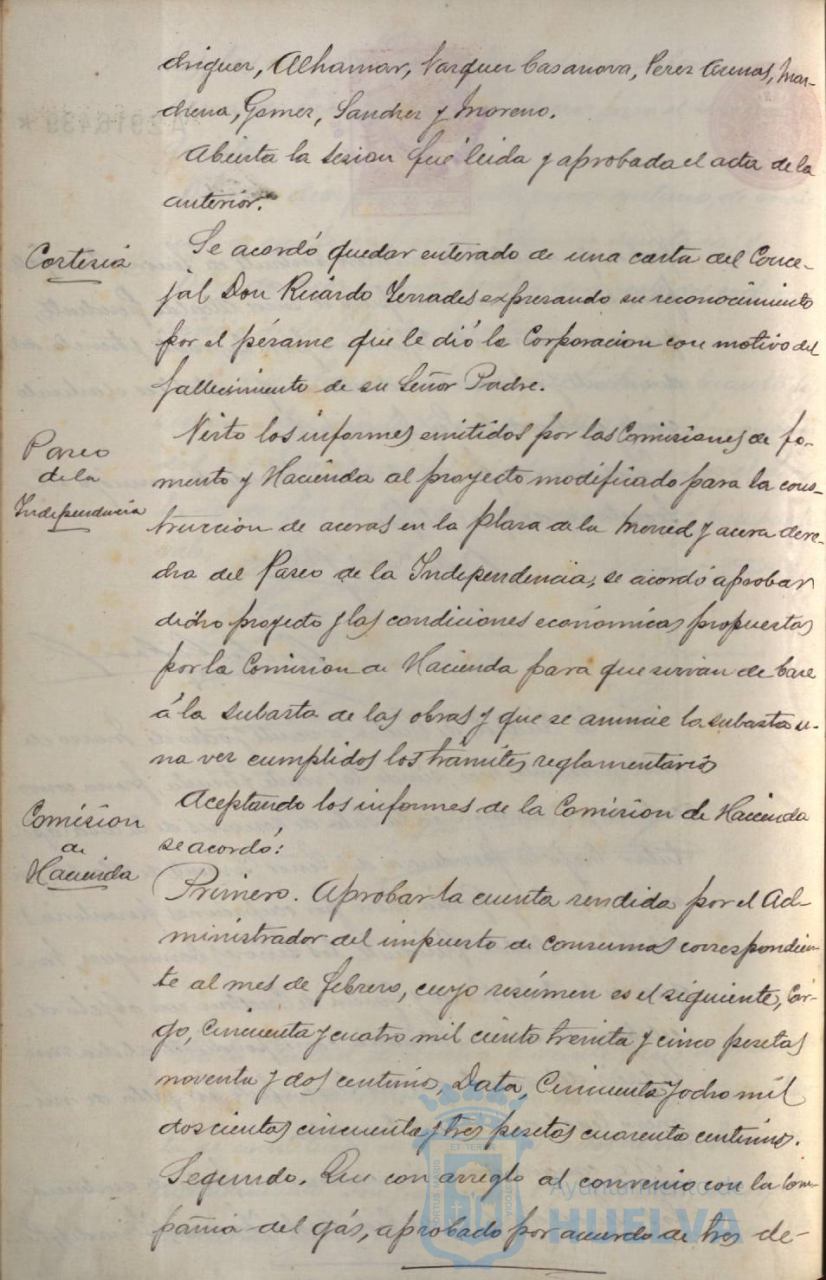 driguez, Alhamar, Vazquez Casanova, Perez Arenas, Mar-
chena, Gomez, Sanchez y Moreno.
Abierta la sesion fué leida y aprobada el acta de la
anterior.
Cortesia
Se acordó quedar enterado de una carta del Conce-
jal Don Ricardo Terrades expresando su reconocimiento
por el pésame que le dió la Corporacion con motivo del
fallecimiento de su Señor Padre.
Paseo
de la
Independencia
Visto los informes emitidos por las Comisiones de fo-
mento y Hacienda al proyecto modificado para la cons-
truccion de aceras en la plaza de la Merced y acera dere-
cha del Paseo de la Independencia, se acordó aprobar
dicho proyecto y las condiciones económicas propuestas
por la Comision de Hacienda para que sirvan de base
á la subasta de las obras y que se anuncie la subasta u-
na vez cumplidos los trámites reglamentarios
Comision
de
Hacienda
Aceptando los informes de la Comision de Hacienda
se acordó:
Primero. Aprobar la cuenta rendida por el Ad-
ministrador del impuesto de consumos correspondien-
te al mes de febrero, cuyo resúmen es el siguiente, Car-
go, Cincuenta y cuatro mil ciento treinta y cinco pesetas
noventa y dos centimos, Data, Cincuenta y ocho mil
doscientas cincuenta y tres pesetas cuarenta centimos.
Segundo. Que con arreglo al convenio con la Com-
pañia del gás, aprobado por acuerdo de tres de-
Ayuntamiento de
HUELVA